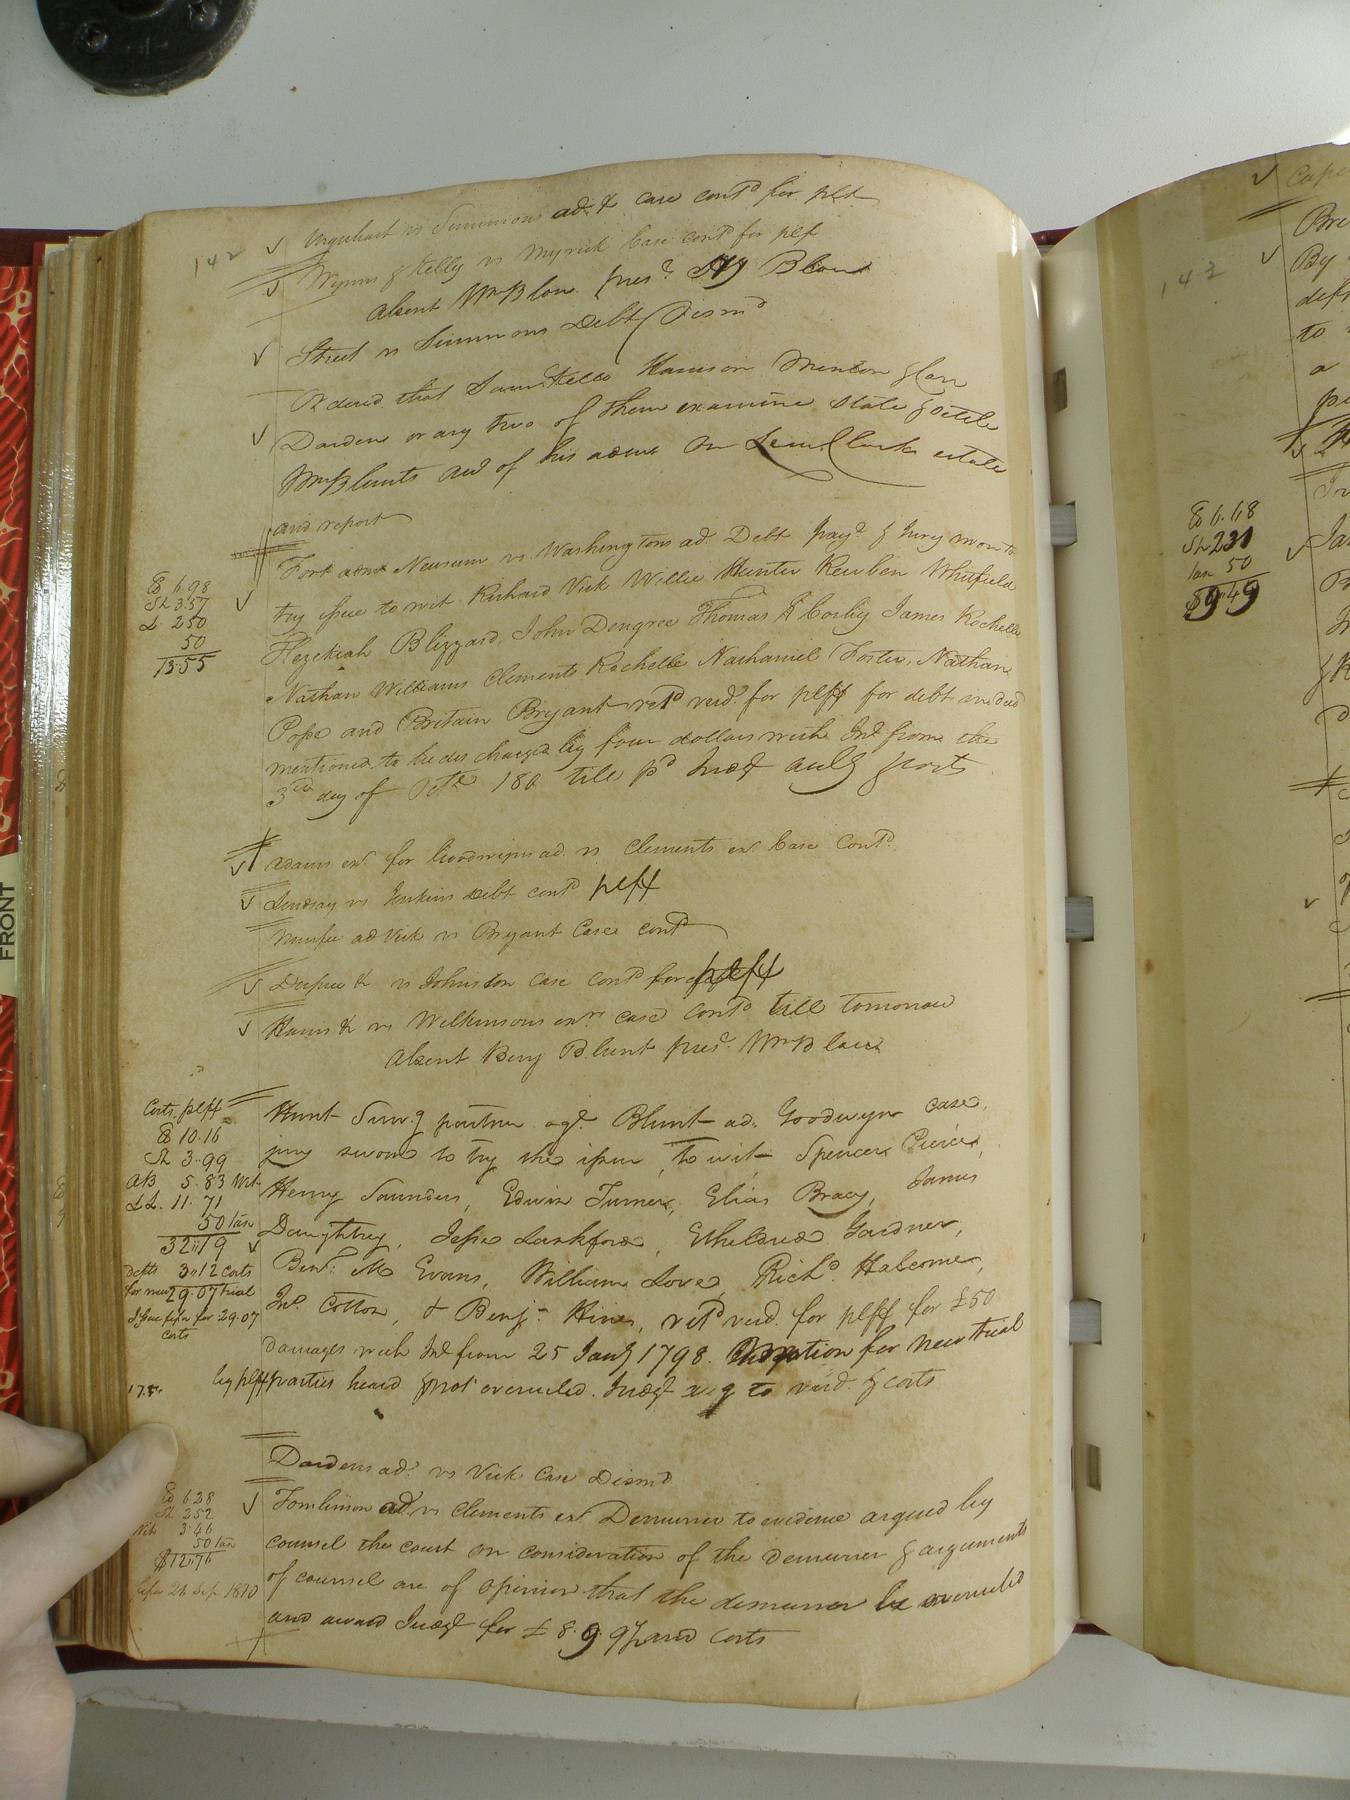 142
Urquhart vs Simmons ad. & case contd for plt
Wynns & Kelly vs Myrick Case contd for plf
Absent Wm Blow prest Hy Blow
Street vs Simmons Debt Dismd
Ordered that Saml Kello Harrison Minton & Carr
Dardens or any two of them examine state & settle
Wm Blunts acct of his admn on Lem. Clarks estate
and report
Fort Newsum vs Washingtons ad. Debt payt & Jury sworn to
try issue to wit Richard Vick Willie Hunter Reuben Whitfield
Hezekiah Blizzard, John Dengree Thomas Cosby James Rochelle
Nathan Williams Clements Rochelle Nathaniel Foster, Nathan
Pope and Britain Bryant retd verdt for plff for debt in decl
mentioned to be discharged by four dollars with Int from the
3rd day of Octr 180 till pd Judgt accg & costs
E 6.98
Sh 3.57
L 250
50
13.55
Adams exr for Goodwyns ad. vs Clements exr Case Contd
Lindsay vs Jenkins Debt contd plff
ad Vick vs Bryant Case contd
Dupree & vs Johnston case contd for plff
Harris & vs Wilkinsons exrs case contd till tomorrow
Absent Benj Blunt prest Wm Blow
Hunt Surv.g partner agt Blunt ad. Goodwyn case,
jury sworn to try the issue, to wit Spencer Pierce,
Henry Saunders, Edwin Turner, Elias Bracy, James
Daughtrey, Jesse Lankford, Etheldred Gardner,
Benj. M Evans, William Love, Richd Halcome,
Jno. Cotton, & Benj. Hines, retd verd. for plff for £50
damages with Int from 25 Jany 1798. Motion for new trial
by plff parties heard & mot overruled. Judgt acg to verd. & costs
Costs plff
E 10.16
Sh 3.99
AB 5.83 Wit
LL. 11.71
50 tax
32.19
Defts 3.12 costs
for new 29.07 trial
for 29.07
costs
Dardens ad. vs Vick Case Dismd
Tomlinson ad. vs Clements exr Demurrer to evidence argued by
counsel the court on consideration of the demurrer & arguments
of counsel are of opinion that the demurrer be overruled
and award Judgt for £ 8.9.9½ and costs
628
Sh 252
Wit 3.46
50 tax
$12.76
21 Sep. 1810
143
E 6.68
Sh 231
tax 50
$9.49